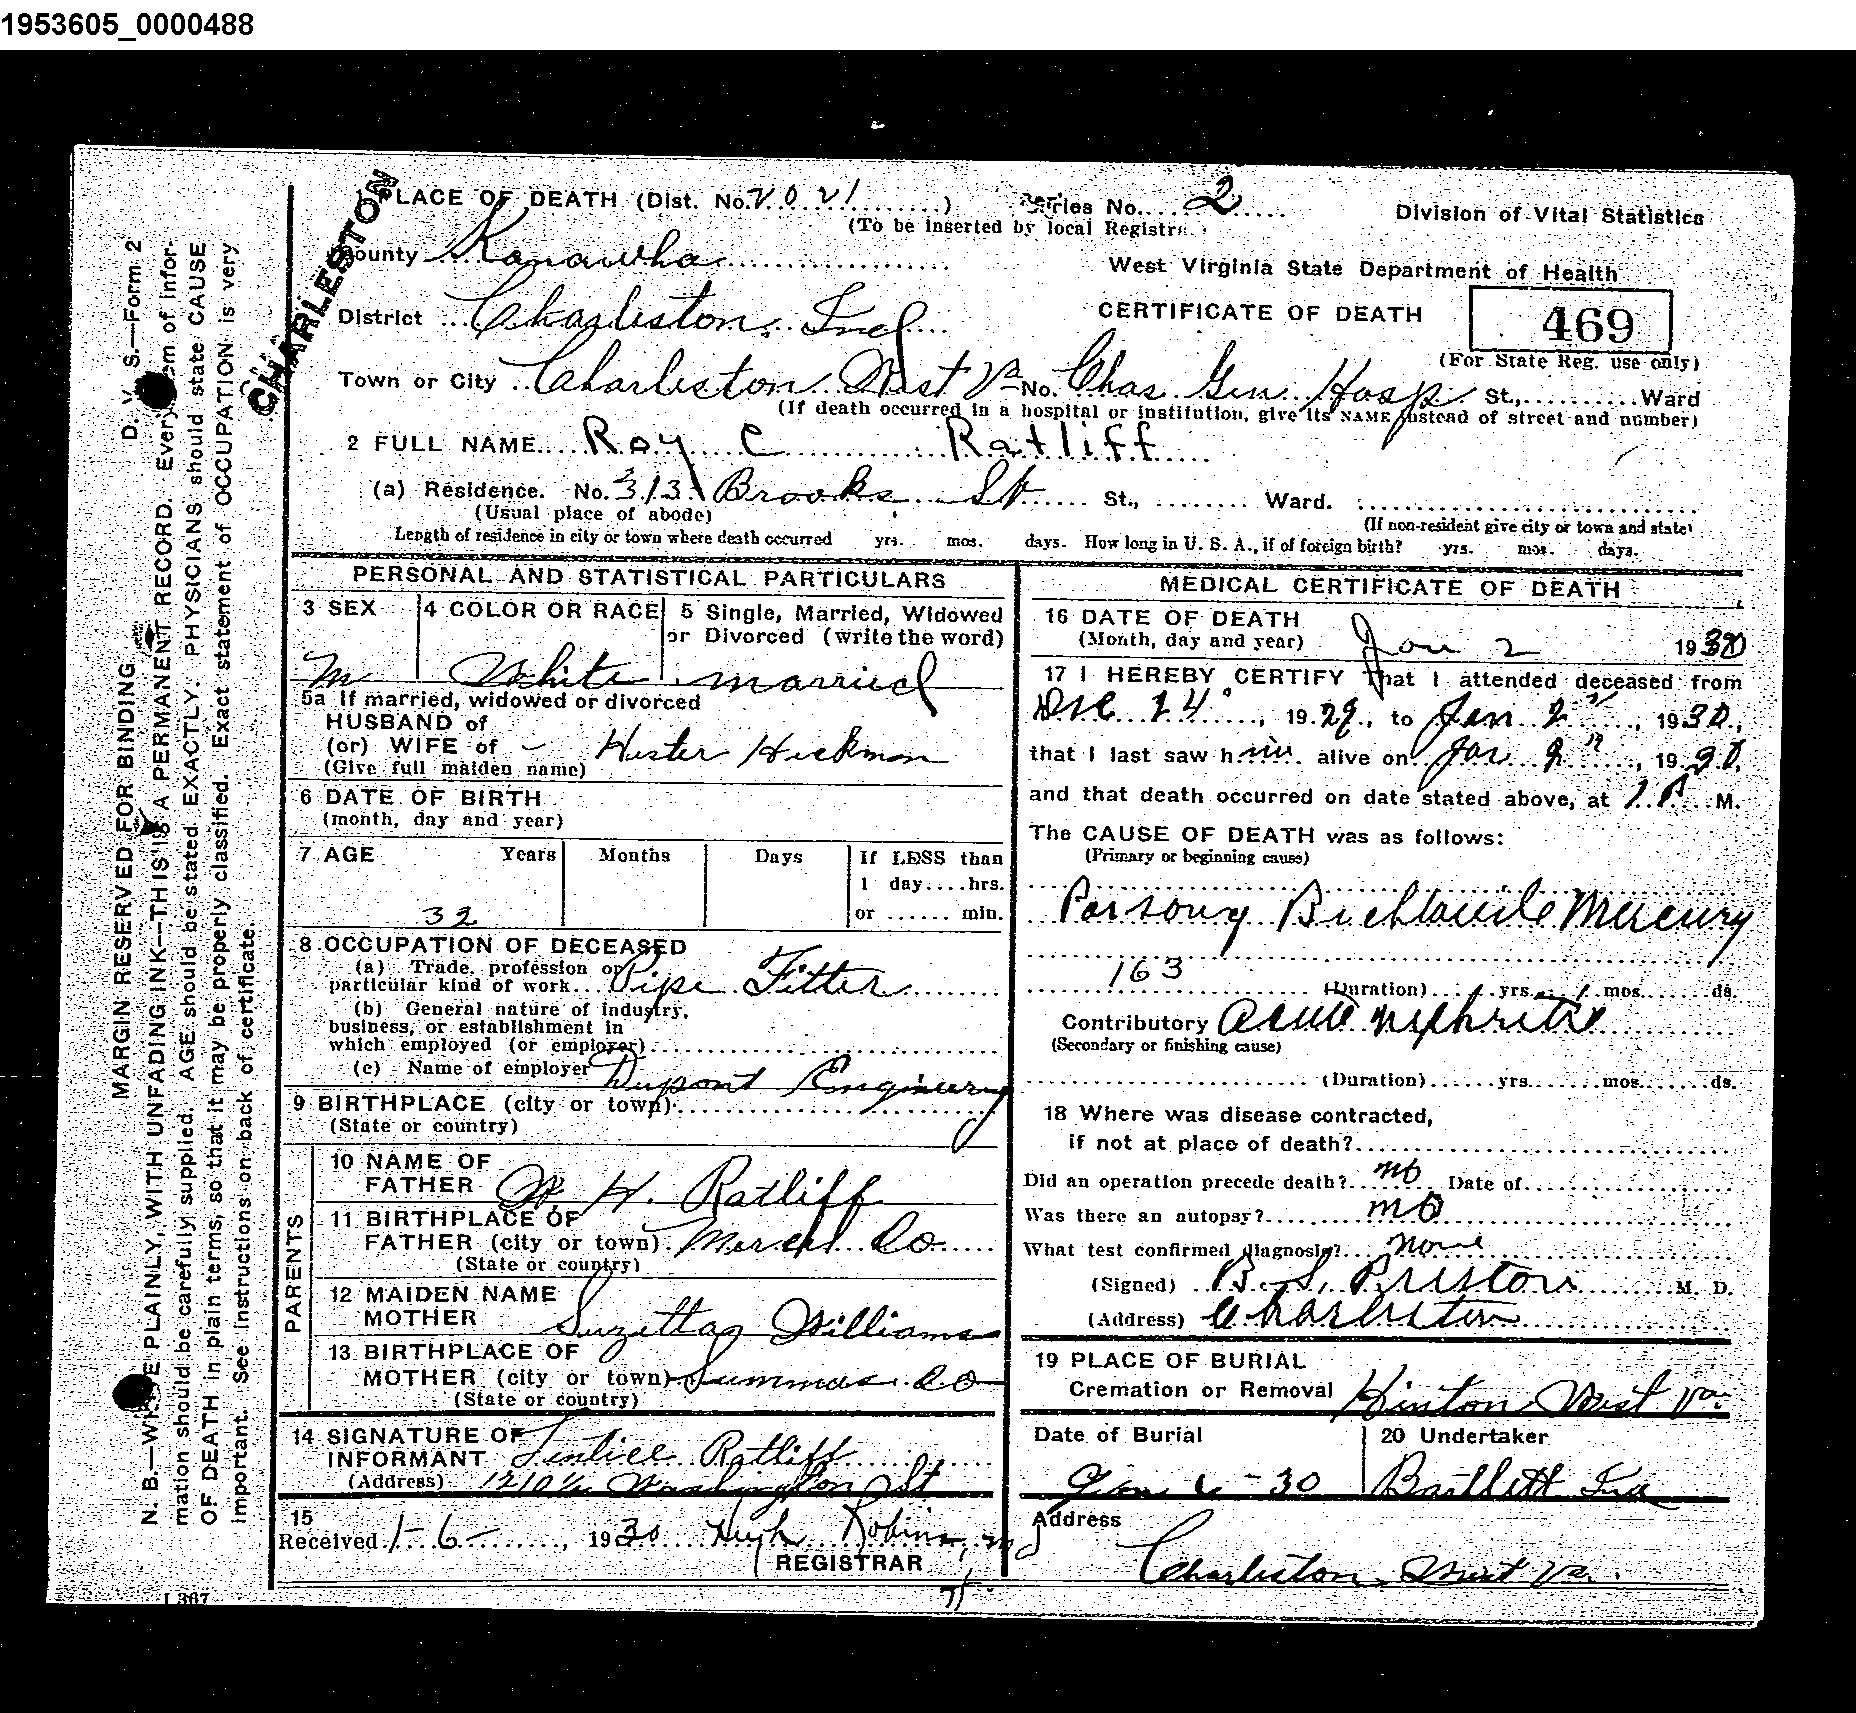 1953605_0000488
CHARLESTON
1 PLACE OF DEATH (Dist. No. 2021) Series No. 2
(To be inserted by local Registrar)
Division of Vital Statistics
County Kanawha
West Virginia State Department of Health
District Charleston Ind
CERTIFICATE OF DEATH
469
(For State Reg. use only)
Town or City Charleston West Va No. Chas Gen Hosp St., Ward
(If death occurred in a hospital or institution, give its NAME instead of street and number)
2 FULL NAME Roy C Ratliff
(a) Residence. No. 313 Brooks St St., Ward.
(Usual place of abode)
(If non-resident give city or town and state)
Length of residence in city or town where death occurred yrs. mos. days. How long in U. S. A., if of foreign birth? yrs. mos. days.
PERSONAL AND STATISTICAL PARTICULARS
3 SEX
M
4 COLOR OR RACE
White
5 Single, Married, Widowed
or Divorced (write the word)
married
5a If married, widowed or divorced
HUSBAND of
(or) WIFE of - Hester Hickman
(Give full maiden name)
6 DATE OF BIRTH
(month, day and year)
7 AGE Years Months Days If LESS than
1 day....hrs.
32 or ...... min.
8 OCCUPATION OF DECEASED
(a) Trade, profession or
particular kind of work Pipe Fitter
(b) General nature of industry,
business, or establishment in
which employed (or employer)
(c) Name of employer Dupont
9 BIRTHPLACE (city or town)
(State or country)
PARENTS
10 NAME OF
FATHER W. H. Ratliff
11 BIRTHPLACE OF
FATHER (city or town) Mercer Co
(State or country)
12 MAIDEN NAME
MOTHER Williams
13 BIRTHPLACE OF
MOTHER (city or town) Summas Co
(State or country)
14 SIGNATURE OF
INFORMANT Ratliff
(Address) 1210½ Washington St
15
Received 1-6-, 1930 Hugh Robins, MD
REGISTRAR
MEDICAL CERTIFICATE OF DEATH
16 DATE OF DEATH
(Month, day and year) Jan 2 1930
17 I HEREBY CERTIFY That I attended deceased from
Dec 24, 1929, to Jan 2", 1930,
that I last saw him alive on Jan 2", 1930,
and that death occurred on date stated above, at 1 P. M.
The CAUSE OF DEATH was as follows:
(Primary or beginning cause)
Mercury
163
(Duration) yrs. 1 mos. ds.
Contributory acute nephritis
(Secondary or finishing cause)
(Duration) yrs. mos. ds.
18 Where was disease contracted,
if not at place of death?
Did an operation precede death? no Date of
Was there an autopsy? no
What test confirmed diagnosis? none
(Signed) B. S. Preston M. D.
(Address) Charleston
19 PLACE OF BURIAL
Cremation or Removal Hinton West Va.
Date of Burial
Jan 6-30
20 Undertaker
Bartlett
Address
Charleston West Va.
D. V. S.—Form 2
MARGIN RESERVED FOR BINDING
N. B.—WRITE PLAINLY, WITH UNFADING INK—THIS IS A PERMANENT RECORD. Every item of infor-
mation should be carefully supplied. AGE should be stated EXACTLY. PHYSICIANS should state CAUSE
OF DEATH in plain terms, so that it may be properly classified. Exact statement of OCCUPATION is very
important. See instructions on back of certificate.
L 367